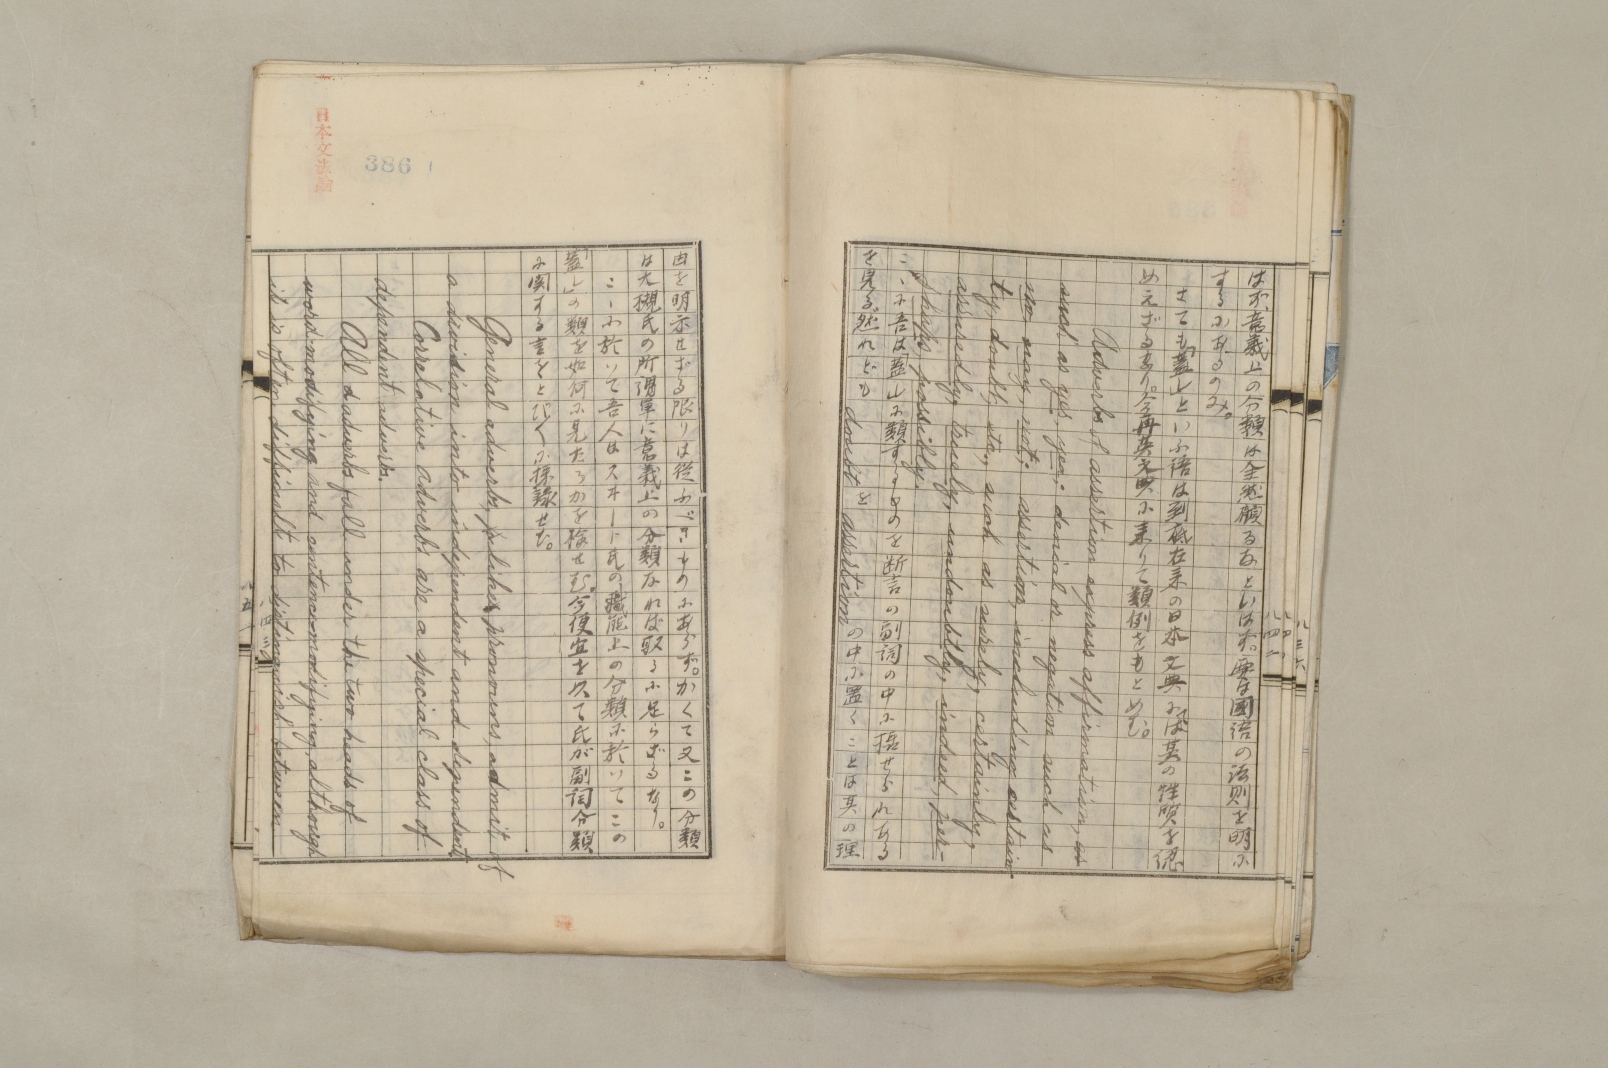 はず意義上の分類は全然顧るなといはず。要は國語の法則を明に
するにあるのみ。
さても「蓋し」といふ語は到底在来の日本文典にては其の性質を認
め元ざるなり。今再英文典に来りて類例をもとめむ。
Adverbs of assertion express affirmation,
such as yes, yea; denial or negation such as
no, nay, not; assertion, including certain-
ty, doubt, etc, such as surely, certainly,
assuredly, truely, undoubtly, indeed, per-
phaps, possibly.
ここに吾は「蓋し」に類するものを断言の副詞の中に括せられある
を見る。然れども doubt を assertion の中に置くことは其の理
由を明示せざる限りは從ふべきものにあらず。かくて又この分類
は大槻氏の所謂單に意義上の分類なれば取るに足らざるなり。
ここに於いて吾人はスヰート氏の職能上の分類に於いてこの
「蓋し」の類を如何に見たるかを檢せむ。今便宜を以て氏が副詞分類
に関する言をとびとびに採録せむ。
General adverbs, like pronouns, admit of
a devision into independent and dependent
Correlative adverbs are a special class of
dependant adverbs.
All adverbs fall under the two heads of
word-modifying and sentence-modifying, although
it is often difficult to distinguish between
日本文法論
386